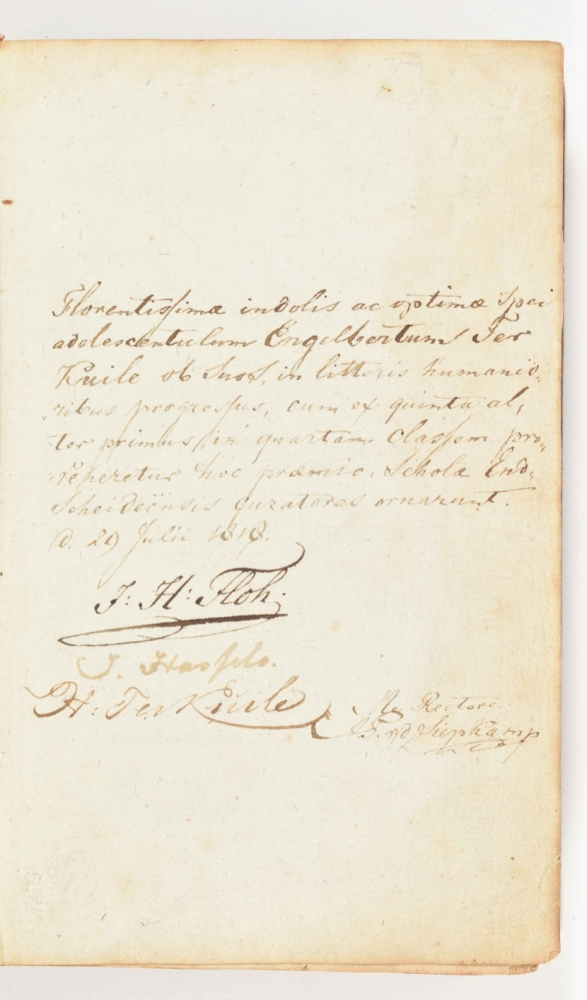 Florentissimæ indolis ac optimæ Spei
adolescentulum Engelbertum Ter
Kuile ob Suos, in litteris humanio-
ribus progressus, cum ex quinta al,
ter primus in quartam Classem pro-
veheretur hoc præmio. Scholæ End-
Scheideënsis curatores ornarunt.
d. 29 Julii 1818.
J: H: Floh.
J. Hassels.
H: Ter Kuile
Me Rectore